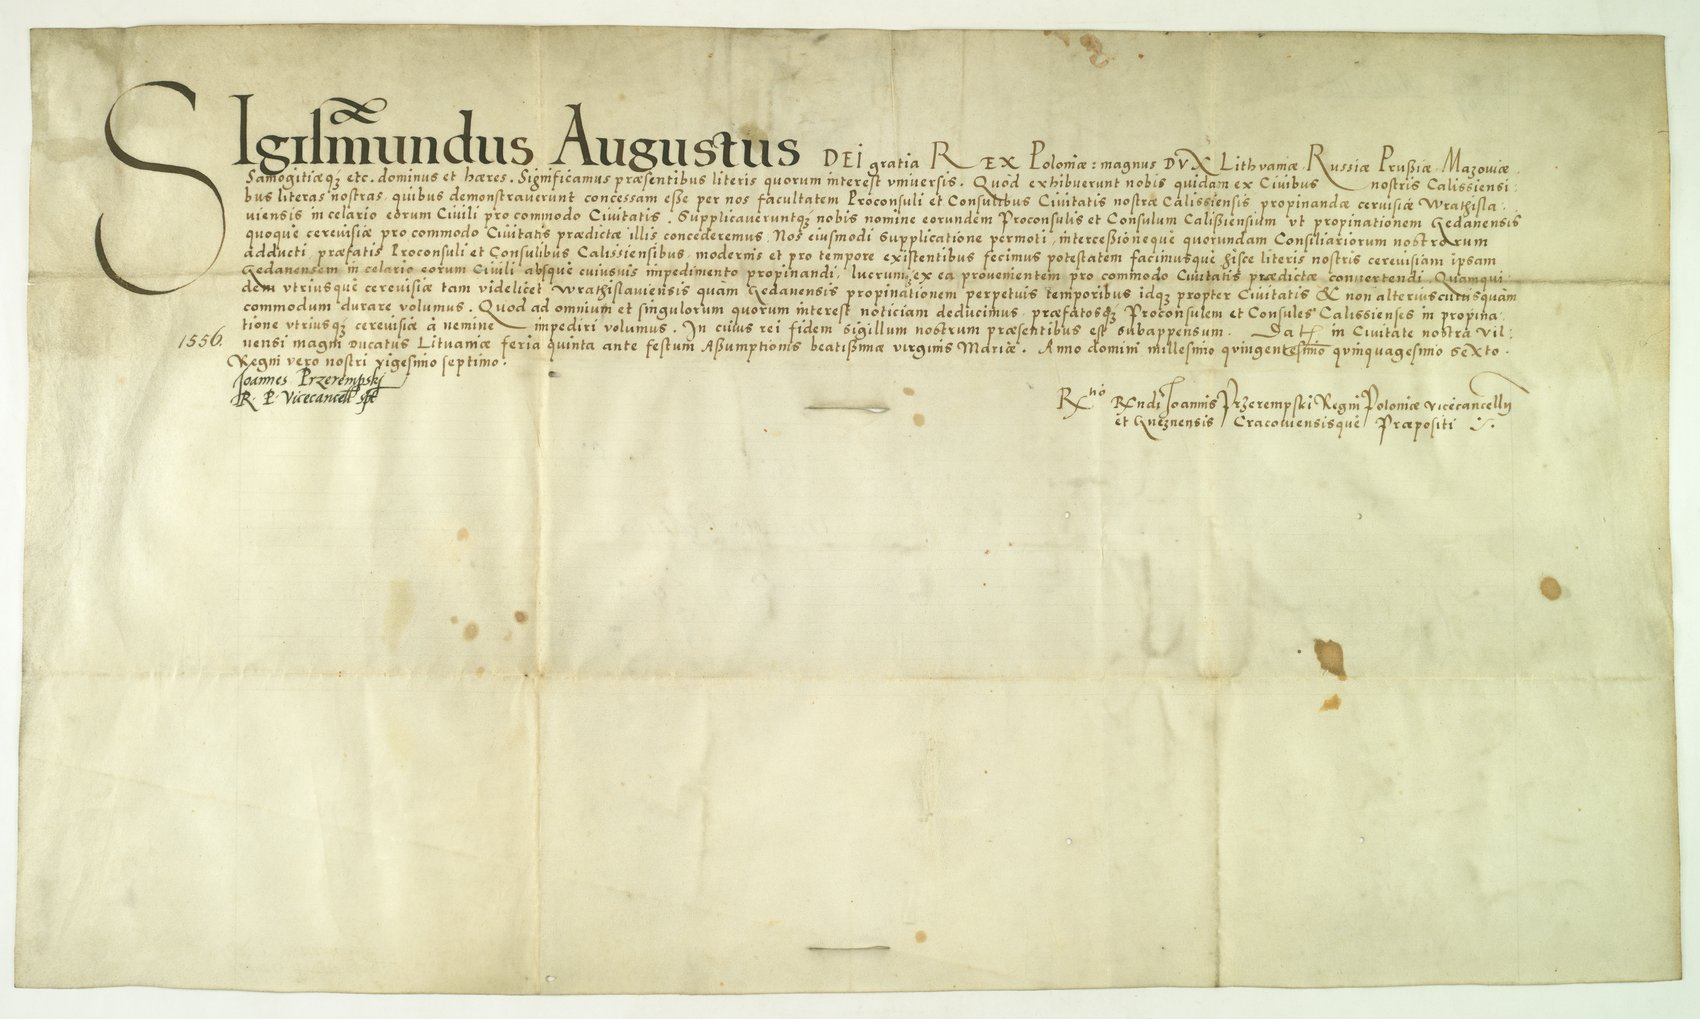 SIgismundus Augustus DEI gratia REX Poloniæ: magnus DVX Lithvaniæ Russiæ Prußiæ Mazoviæ
Samogitiæqꝫ etc. dominus et hæres. Significamus præsentibus literis quorum interest vniversis. Quòd exhibuerunt nobis quidam ex Civibus nostris Calissiensi:
bus literas nostras, quibus demonstraverunt concessam eße per nos facultatem Proconsuli et Consulibus Civitatis nostræ Calissiensis propinandæ cervisiæ Wrathisla:
viensis in celario eorum Civili pro commodo Civitatis. Supplicaveruntqꝫ nobis nomine eorundem Proconsulis et Consulum Calißiensium vt propinationem Gedanensis
quoque cerevisiæ pro commodo Civitatis prædictæ illis concederemus. Nos eiusmodi supplicatione permoti, intercessioneque quorundam Consiliariorum nostrorum
adducti, præfatis Proconsuli et Consulibus Calissiensibus, modernis et pro tempore existentibus fecimus potestatem facimusque hisce literis nostris cerevisiam ipsam
Gedanensem in celario eorum Civili absque cuiusvis impedimento propinandi, lucrumqꝫ ex ea provenientem pro commodo Civitatis prædictæ convertendi. Quamqui:
dem vtriusque cerevisiæ tam videlicet Wrathislaviensis quàm Gedanensis propinationem perpetuis temporibus idqꝫ propter Civitatis & non alterius cuiusquam
commodum durare volumus. Quod ad omnium et singulorum quorum interest noticiam deducimus, præfatosqꝫ Proconsulem et Consules Calissienses in propina:
tione vtriusqꝫ cerevisiæ à nemine impediri volumus. In cuius rei fidem sigillum nostrum præsentibus est subappensum. Dat in Civitate nostra Vil:
1556.
nensi magni Ducatus Lituaniæ feria quinta ante festum Aßumptionis beatißimæ virginis Mariæ. Anno domini millesimo qvingentesimo qvinquagesimo sexto.
Regni vero nostri vigesimo septimo.
Joannes Przerempskj
R. P. Vicecancell sst
Rtio Rndi Joannis Przerempski Regni Poloniæ vicecancellij
et Gneznensis Cracoviensisque Præpositi